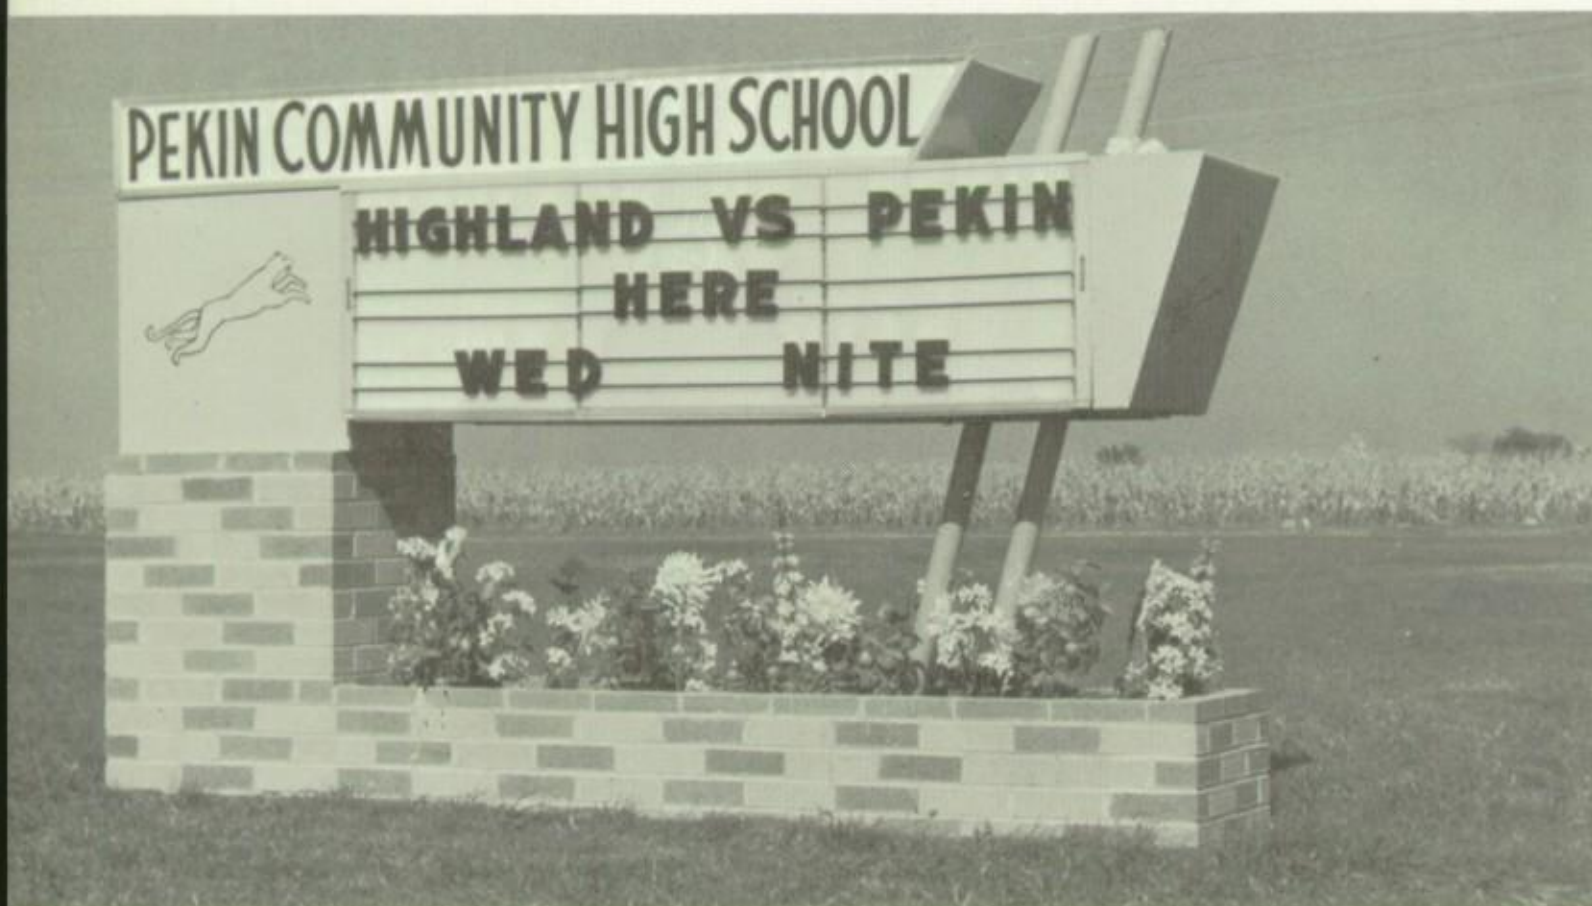 PEKIN COMMUNITY HIGH SCHOOL
HIGHLAND VS PEKIN
HERE
WED NITE